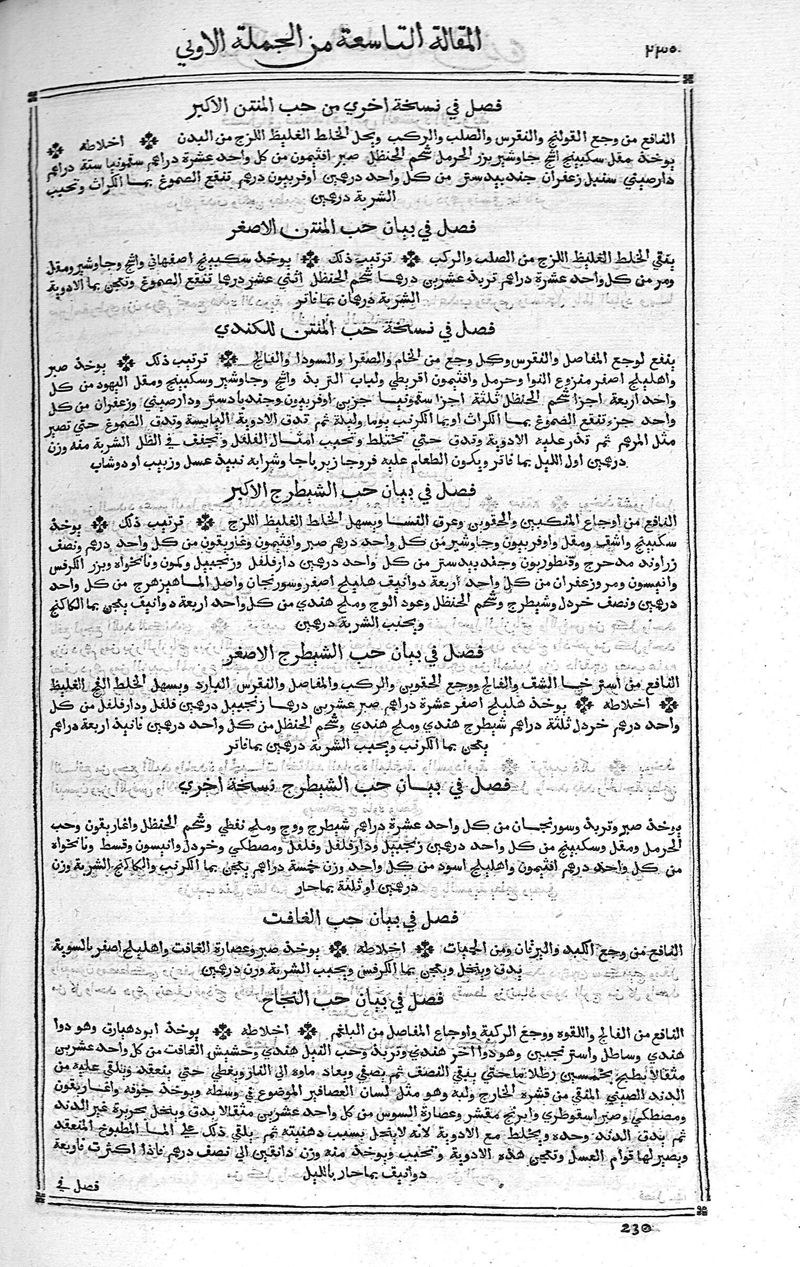 ٢٣٠
المقالة التاسعة من الجملة الاولي
فصل في نسخة اخري من حب المنتن الاكبر
النافع من وجع القولنج والنقرس والصلب والركب ويحل الخلط الغليظ اللزج من البدن ✤ اخلاطه ✤
يوخذ مقل سكبينج اشج جاوشير بزر الحرمل شحم الحنظل صبر افتيمون من كل واحد عشرة دراهم سقمونيا ستة دراهم
دارصيني سنبل زعفران جندبيدستر من كل واحد درهمين اوفربيون درهم تنقع الصموغ بما الكراث وتحبب
الشربة درهمين
فصل في بيان حب المنتن الاصغر
ينقي الخلط الغليظ اللزج من الصلب والركب ✤ ترتيب ذلك ✤ يوخذ سكبينج اصفهاني واشج وجاوشير ومقل
ومر من كل واحد عشرة دراهم تربد عشرين درهما شحم الحنظل اثني عشر درهما تنقع الصموغ وتعجن بما الادوية
الشربة درهمان بما فاتر
فصل في نسخة حب المنتن للكندي
ينفع لوجع المفاصل والنقرس وكل وجع من الخام والصفرا والسودا والفالج ✤ ترتيب ذلك ✤ يوخذ صبر
واهليلج اصفر منزوع النوا وحرمل وافتيمون اقريطي ولباب التربد واشج وجاوشير وسكبينج ومقل اليهود من كل
واحد اربعة اجزا شحم الحنظل ثلثة اجزا سقمونيا جزين اوفربيون وجندبادستر ودارصيني وزعفران من كل
واحد جزء تنقع الصموغ بما الكراث او بما الكرنب يوما وليلة ثم تدق الادوية اليابسة وتدق الصموغ حتي تصير
مثل المرهم ثم تذر عليه الادوية وتدق حتي تختلط وتحبب امثال الفلفل وتجفف في الظل الشربة منه وزن
درهمين اول الليل بما فاتر ويكون الطعام عليه فروجا زيرباجا وشرابه نبيذ عسل وزبيب او دوشاب
فصل في بيان حب الشيطرج الاكبر
النافع من اوجاع المنكبين والحقوين وعرق النسا ويسهل الخلط الغليظ اللزج ✤ ترتيب ذلك ✤ يوخذ
سكبينج واشق ومقل واوفربيون وجاوشير من كل واحد درهم صبر وافتيمون وغاريقون من كل واحد درهم ونصف
زراوند مدحرج وقنطوريون وجندبيدستر من كل واحد درهمين دارفلفل وزنجبيل وكمون ونانخواه وبزر الكرفس
وانيسون ومر وزعفران من كل واحد اربعة دوانيف هليلج اصفر وسورنجان واصل الماهيزهرج من كل واحد
درهمين ونصف خردل وشيطرج وشحم الحنظل وعود الوج وملح هندي من كل واحد اربعة دوانيف يعجن بما الكاكنج
ويحبب الشربة درهمين
فصل في بيان حب الشيطرج الاصغر
النافع من استرخا الشف والفالج ووجع الحقوين والركب والمفاصل والنقرس البارد ويسهل الخلط الفج الغليظ
✤ اخلاطه ✤ يوخذ هليلج اصفر عشرة دراهم صبر عشرين درهما زنجبيل درهمين فلفل ودارفلفل من كل
واحد درهم خردل ثلثة دراهم شيطرج هندي وملح هندي وشحم الحنظل من كل واحد درهمين فانيد اربعة دراهم
يعجن بما الكرنب ويحبب الشربة درهمين بما فاتر
فصل في بيان حب الشيطرج نسخة اخري
يوخذ صبر وتربد وسورنجان من كل واحد عشرة دراهم شيطرج ووج وملح نفطي وشحم الحنظل واغاريقون وحب
الحرمل ومقل وسكبينج من كل واحد درهمين زنجبيل ودارفلفل وفلفل ومصطكي وخردل وانيسون وقسط ونانخواه
من كل واحد درهم افتيمون واهليلج اسود من كل واحد وزن خمسة دراهم يعجن بما الكرنب والكاكنج الشربة وزن
درهمين او ثلثة بما حار
فصل في بيان حب الغافت
النافع من وجع الكبد واليرقان ومن الحميات ✤ اخلاطه ✤ يوخذ صبر وعصارة الغافت واهليلج اصفر بالسوية
يدق وينخل ويعجن بما الكرفس ويحبب الشربة وزن درهمين
فصل في بيان حب النجاح
النافع من الفالج واللقوه ووجع الركبة واوجاع المفاصل من البلغم ✤ اخلاطه ✤ يوخذ ابودهبارت وهو دوا
هندي وساطل واسترنجبين وهو دوا اخر هندي وتربد وحب النيل هندي وحشيش الغافت من كل واحد عشرين
مثقالا يطبخ بخمسين رطلا ما حتي يبقي النصف ثم يصفي ويعاد ماوه الي النار ويغلي حتي ينعقد ويلقي عليه من
الدند الصيني المنقي من قشره الخارج ولبه وهو مثل لسان العصافير الموضوع في وسطه ويوخذ جوفه واغاريقون
ومصطكي وصبر اسقوطري وابرنج مقشر وعصارة السوس من كل واحد عشرين مثقالا يدق وينخل بحريرة غير الدند
ثم يدق الدند وحده ويخلط مع الادوية لانه لا ينخل بسبب دهنيته ثم يلقي ذلك علي الما المطبوخ المنعقد
ويصير لها قوام العسل وتعجن هذه الادوية وتحبب ويوخذ منه وزن دانقين الي نصف درهم فاذا اكثرت فاربعة
دوانيف بما حار بالليل
فصل في
230